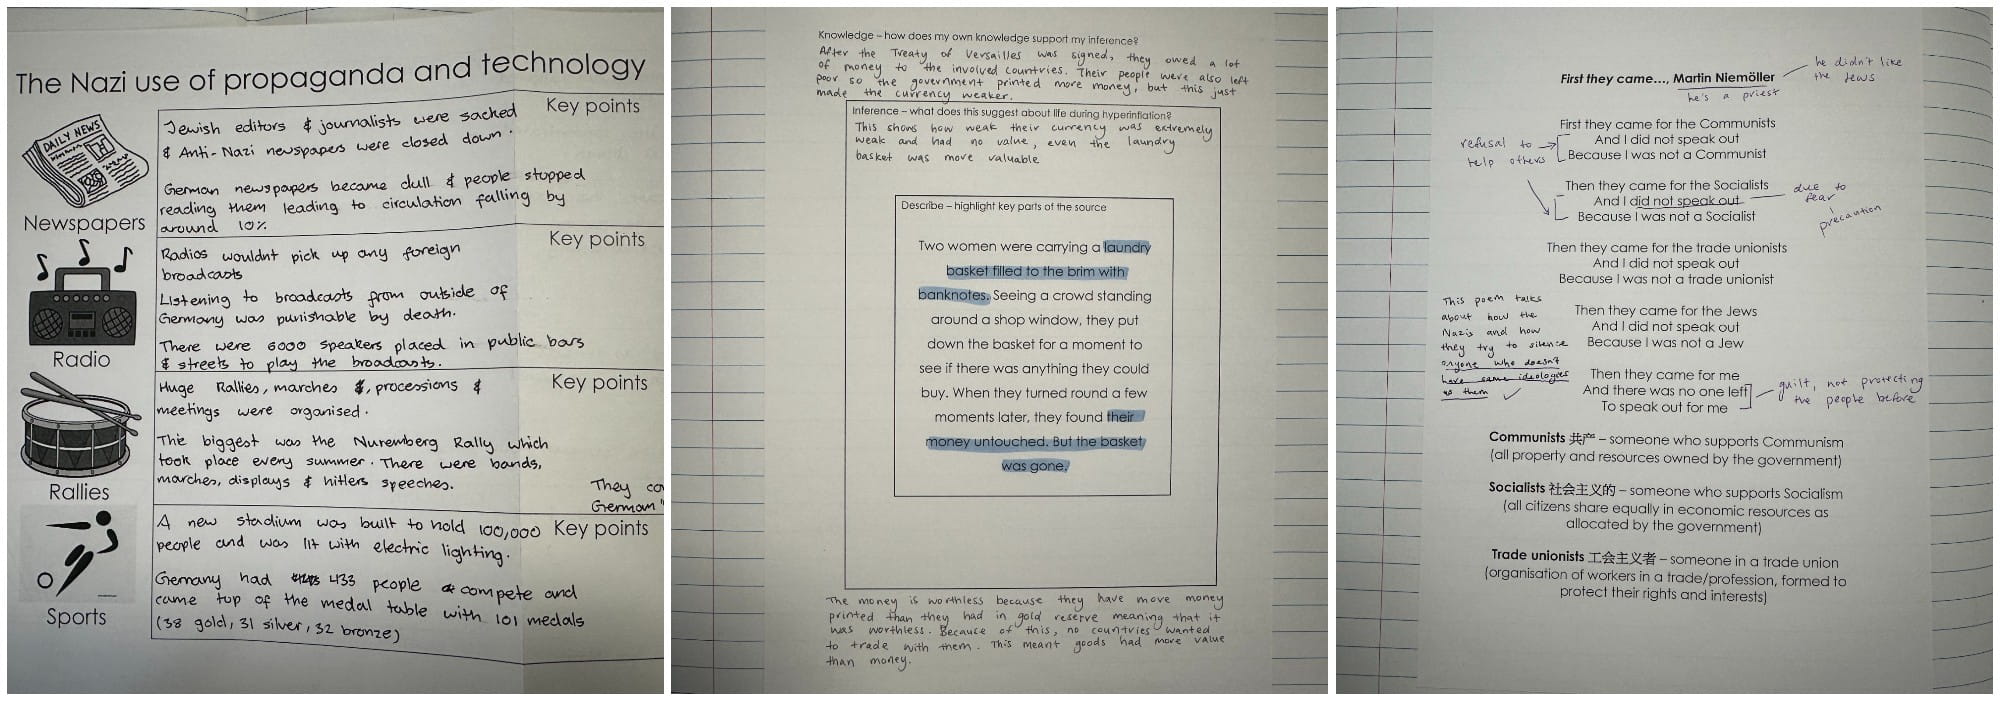 The Nazi use of propaganda and technology
DAILY NEWS
Newspapers
Jewish editors & journalists were sacked
& Anti-Nazi newspapers were closed down.
German newspapers became dull & people stopped
reading them leading to circulation falling by
around 10%
Key points
Radio
Radios wouldnt pick up any foreign
broadcasts
Listening to broadcasts from outside of
Germany was punishable by death.
There were 6000 speakers placed in public bars
& streets to play the broadcasts.
Key points
Rallies
Huge Rallies, marches &, processions &
meetings were organised.
The biggest was the Nuremberg Rally which
took place every summer. There were bands,
marches, displays & hitlers speeches.
Key points
They co
German
Sports
A new stadium was built to hold 100,000
people and was lit with electric lighting.
Germany had 433 people compete and
came top of the medal table with 101 medals
(38 gold, 31 silver, 32 bronze)
Key points
Knowledge – how does my own knowledge support my inference?
After the Treaty of Versailles was signed, they owed a lot
of money to the involved countries. Their people were also left
poor so the government printed more money, but this just
made the currency weaker.
Inference – what does this suggest about life during hyperinflation?
This shows how weak their currency was extremely
weak and had no value, even the laundry
basket was more valuable
Describe – highlight key parts of the source
Two women were carrying a laundry
basket filled to the brim with
banknotes. Seeing a crowd standing
around a shop window, they put
down the basket for a moment to
see if there was anything they could
buy. When they turned round a few
moments later, they found their
money untouched. But the basket
was gone.
The money is worthless because they have more money
printed than they had in gold reserve meaning that it
was worthless. Because of this, no countries wanted
to trade with them. This meant goods had more value
than money.
First they came..., Martin Niemöller
he's a priest
he didn't like
the Jews
First they came for the Communists
And I did not speak out
Because I was not a Communist
refusal to
help others
Then they came for the Socialists
And I did not speak out
Because I was not a Socialist
due to
fear
precaution
Then they came for the trade unionists
And I did not speak out
Because I was not a trade unionist
Then they came for the Jews
And I did not speak out
Because I was not a Jew
This poem talks
about how the
Nazis and how
they try to silence
anyone who doesn't
have same ideologies
as them
Then they came for me
And there was no one left
To speak out for me
guilt, not protecting
the people before
Communists 共产 – someone who supports Communism
(all property and resources owned by the government)
Socialists 社会主义的 – someone who supports Socialism
(all citizens share equally in economic resources as
allocated by the government)
Trade unionists 工会主义者 – someone in a trade union
(organisation of workers in a trade/profession, formed to
protect their rights and interests)